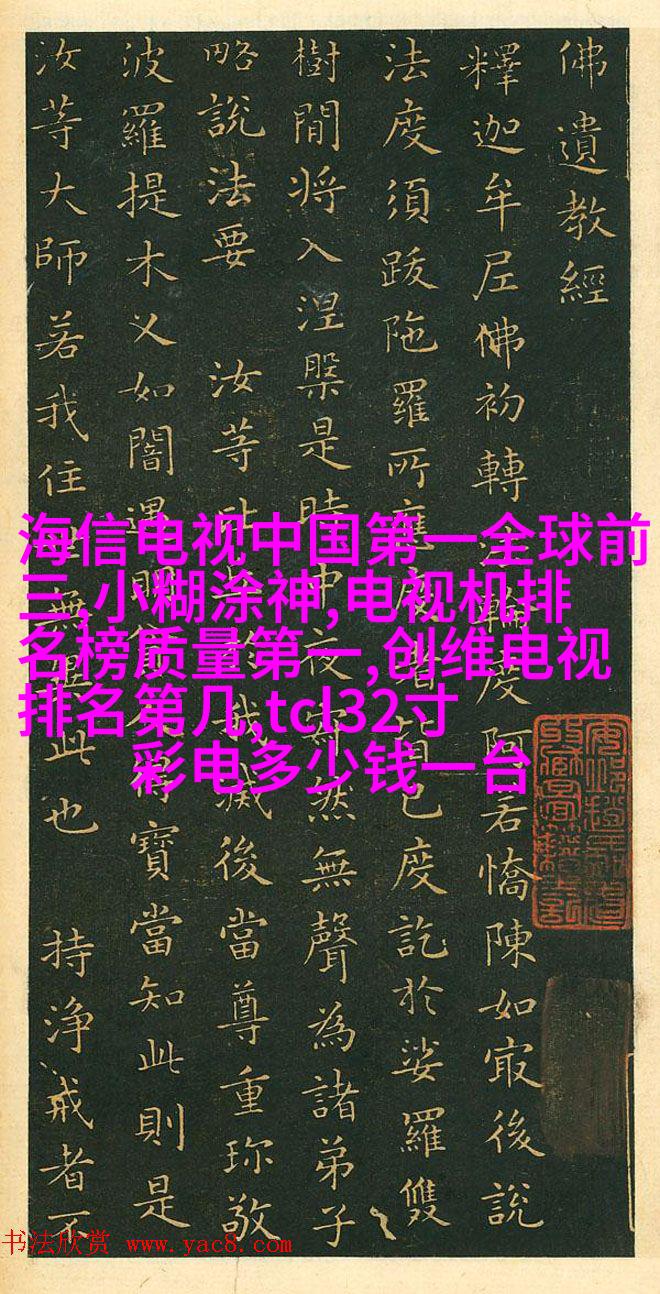 佛遺教經
釋迦牟尼佛初轉法輪度阿若憍陳如㝡後說
法度須跋陁羅所應度者皆已度訖於娑羅雙
樹間將入涅槃是時中夜寂然無聲為諸弟子
略說法要 汝等比丘於我滅後當尊重珎敬
波羅提木叉如闇遇明貧人得寶當知此則是
汝等大師若我住世無異此也 持淨戒者不
海信电视中国第一全球前
三,小糊涂神,电视机排
名榜质量第一,创维电视
排名第几,tcl32寸
彩电多少钱一台
书法欣赏 www.yac8.com